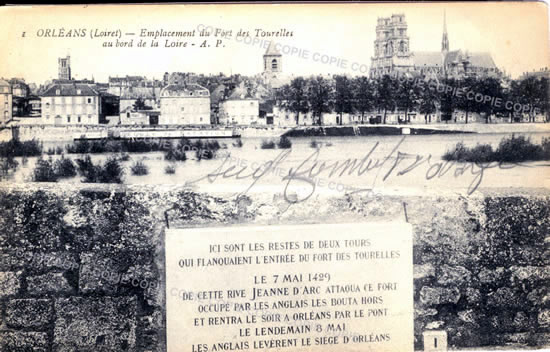 1 ORLÉANS (Loiret) — Emplacement du Fort des Tourelles
au bord de la Loire - A. P.
COPIE COPIE COPIE COPIE COPIE COPIE COPIE COPIE COPIE
ICI SONT LES RESTES DE DEUX TOURS
QUI FLANQUAIENT L'ENTRÉE DU FORT DES TOURELLES
LE 7 MAI 1429
DE CETTE RIVE JEANNE D'ARC ATTAQUA CE FORT
OCCUPÉ PAR LES ANGLAIS LES BOUTA HORS
ET RENTRA LE SOIR A ORLÉANS PAR LE PONT
LE LENDEMAIN 8 MAI
LES ANGLAIS LEVÈRENT LE SIÈGE D'ORLÉANS